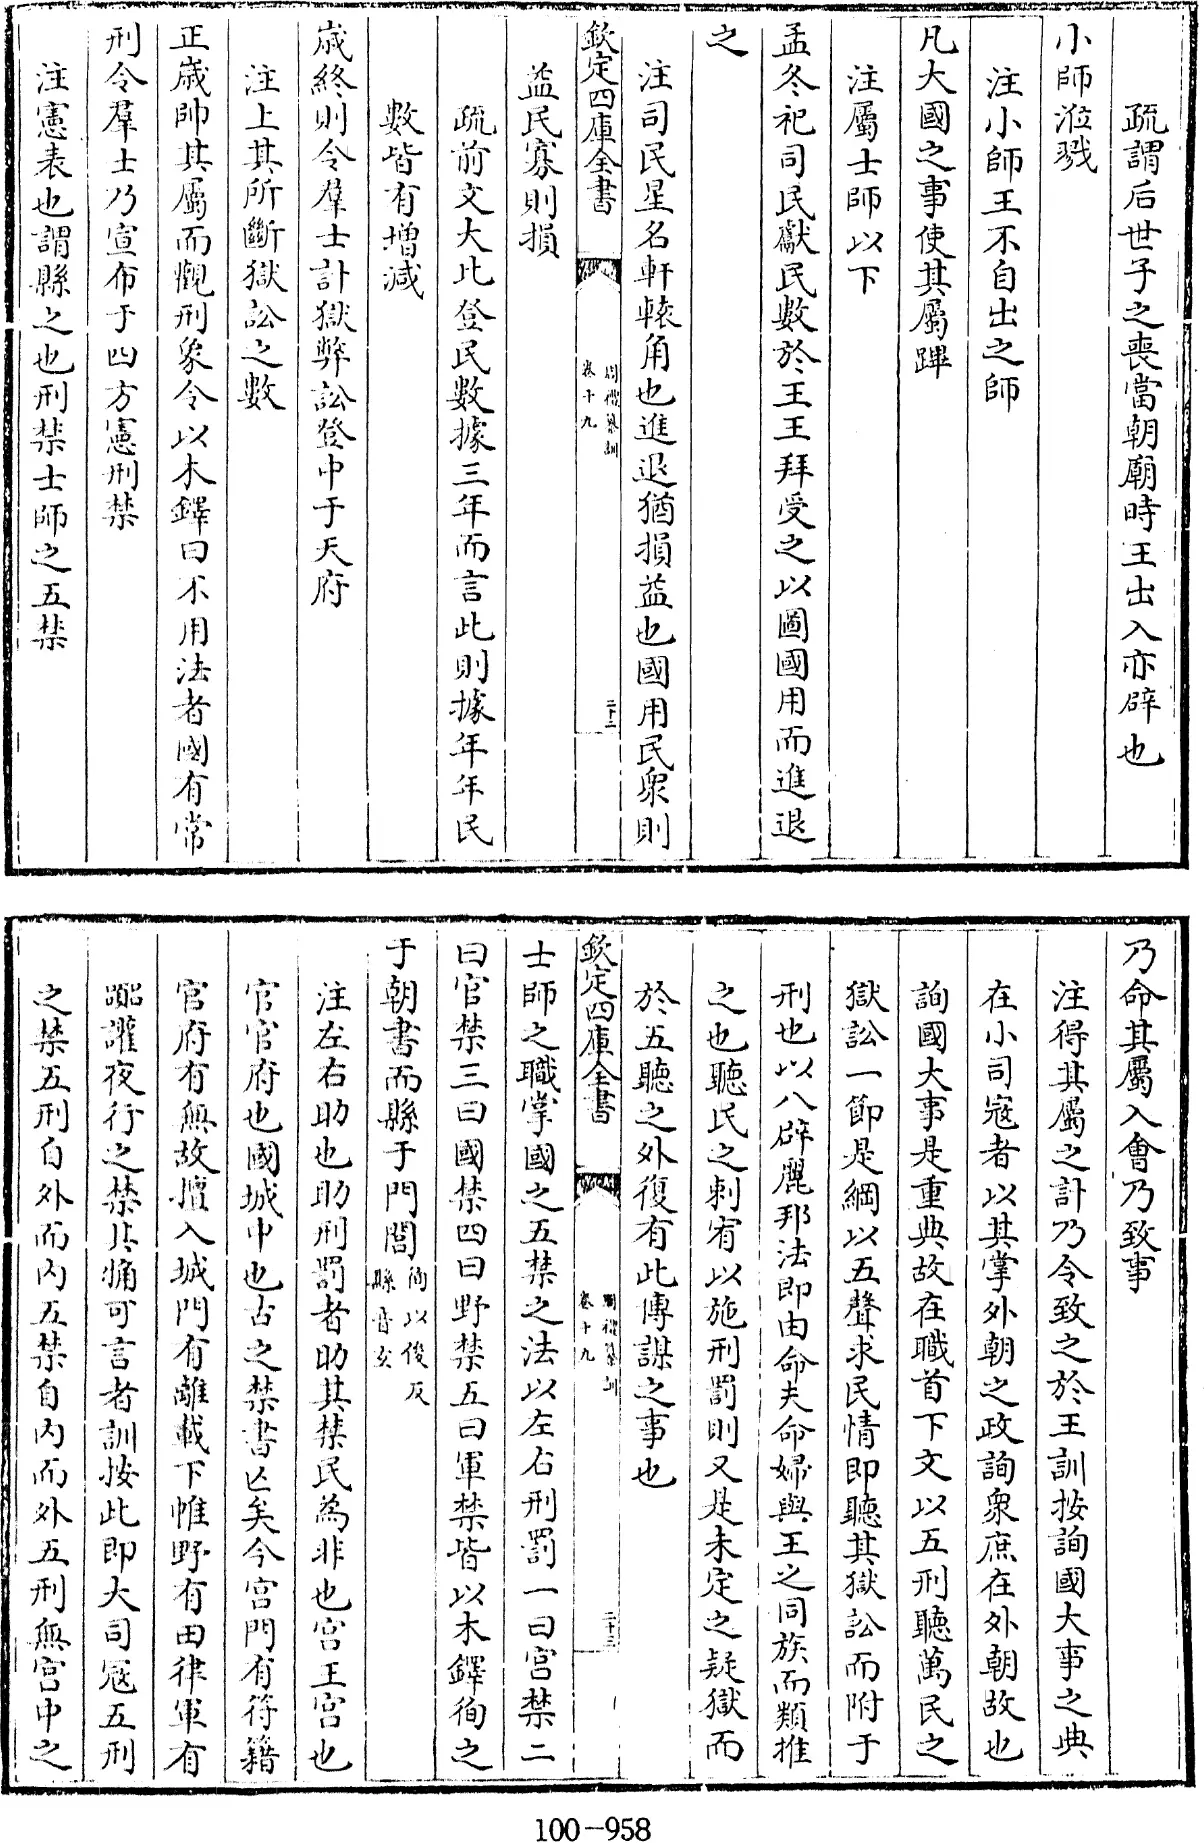 疏謂后世子之喪當朝廟時王出入亦辟也
小師涖戮
注小師王不自出之師
凡大國之事使其屬蹕
注屬士師以下
孟冬祀司民獻民數於王王拜受之以圖國用而進退
之
注司民星名軒轅角也進退猶損益也國用民衆則
欽定四庫全書
周禮纂訓
卷十九
二十二
益民寡則損
疏前文大比登民數據三年而言此則據年年民
數皆有增減
歲終則令羣士計獄弊訟登中于天府
注上其所斷獄訟之數
正歲帥其屬而觀刑象令以木鐸曰不用法者國有常
刑令羣士乃宣布于四方憲刑禁
注憲表也謂縣之也刑禁士師之五禁
乃命其屬入會乃致事
注得其屬之計乃令致之於王訓按詢國大事之典
在小司寇者以其掌外朝之政詢衆庶在外朝故也
詢國大事是重典故在職首下文以五刑聽萬民之
獄訟一節是綱以五聲求民情即聽其獄訟而附于
刑也以八辟麗邦法即由命夫命婦與王之同族而類推
之也聽民之刺宥以施刑罰則又是未定之疑獄而
於五聽之外復有此傳謀之事也
欽定四庫全書
周禮纂訓
卷十九
二十三
士師之職掌國之五禁之法以左右刑罰一曰宮禁二
曰官禁三曰國禁四曰野禁五曰軍禁皆以木鐸徇之
于朝書而縣于門閭徇以俊反縣音玄
注左右助也助刑罰者助其禁民為非也宮王宮也
官官府也國城中也古之禁書亡矣今宮門有符籍
官府有無故擅入城門有離載下帷野有田律軍有
嚻讙夜行之禁其觕可言者訓按此即大司寇五刑
之禁五刑自外而内五禁自内而外五刑無宮中之
100-958